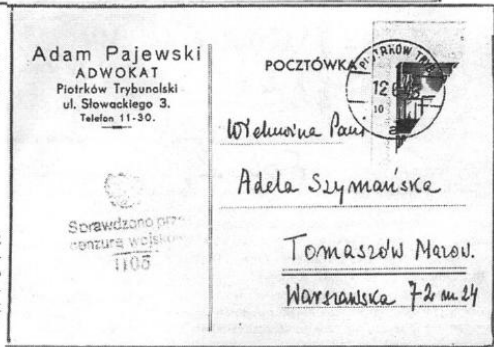 Adam Pajewski
ADWOKAT
Piotrków Trybunalski
ul. Słowackiego 3.
Telefon 11-30.
Sprawdzono
cenzurę
1105
POCZTÓWKA
PIOTRKÓW TRYB
12
10
a
Adela Szymańska
Tomaszów Mazow.
Warszawska 72 m 24